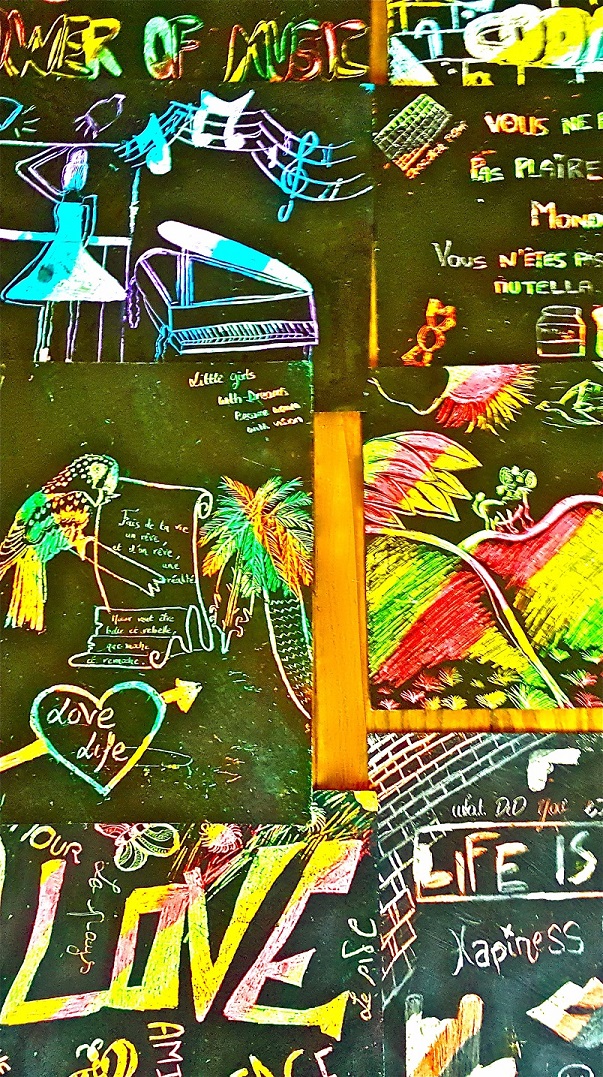 POWER OF MUSIC
VOUS NE P
PAS PLAIRE
MOND
VOUS N'ÊTES PAS
NUTELLA.
Little girls
with Dreams
Become women
with vision
Fais de ta vie
un rêve,
et d'un rêve,
une
réalité
Mieux vaut être
belle et rebelle
que moche
et remoche
Love
Life
LOVE
AMI
what DiD You
LiFE IS
Hapiness